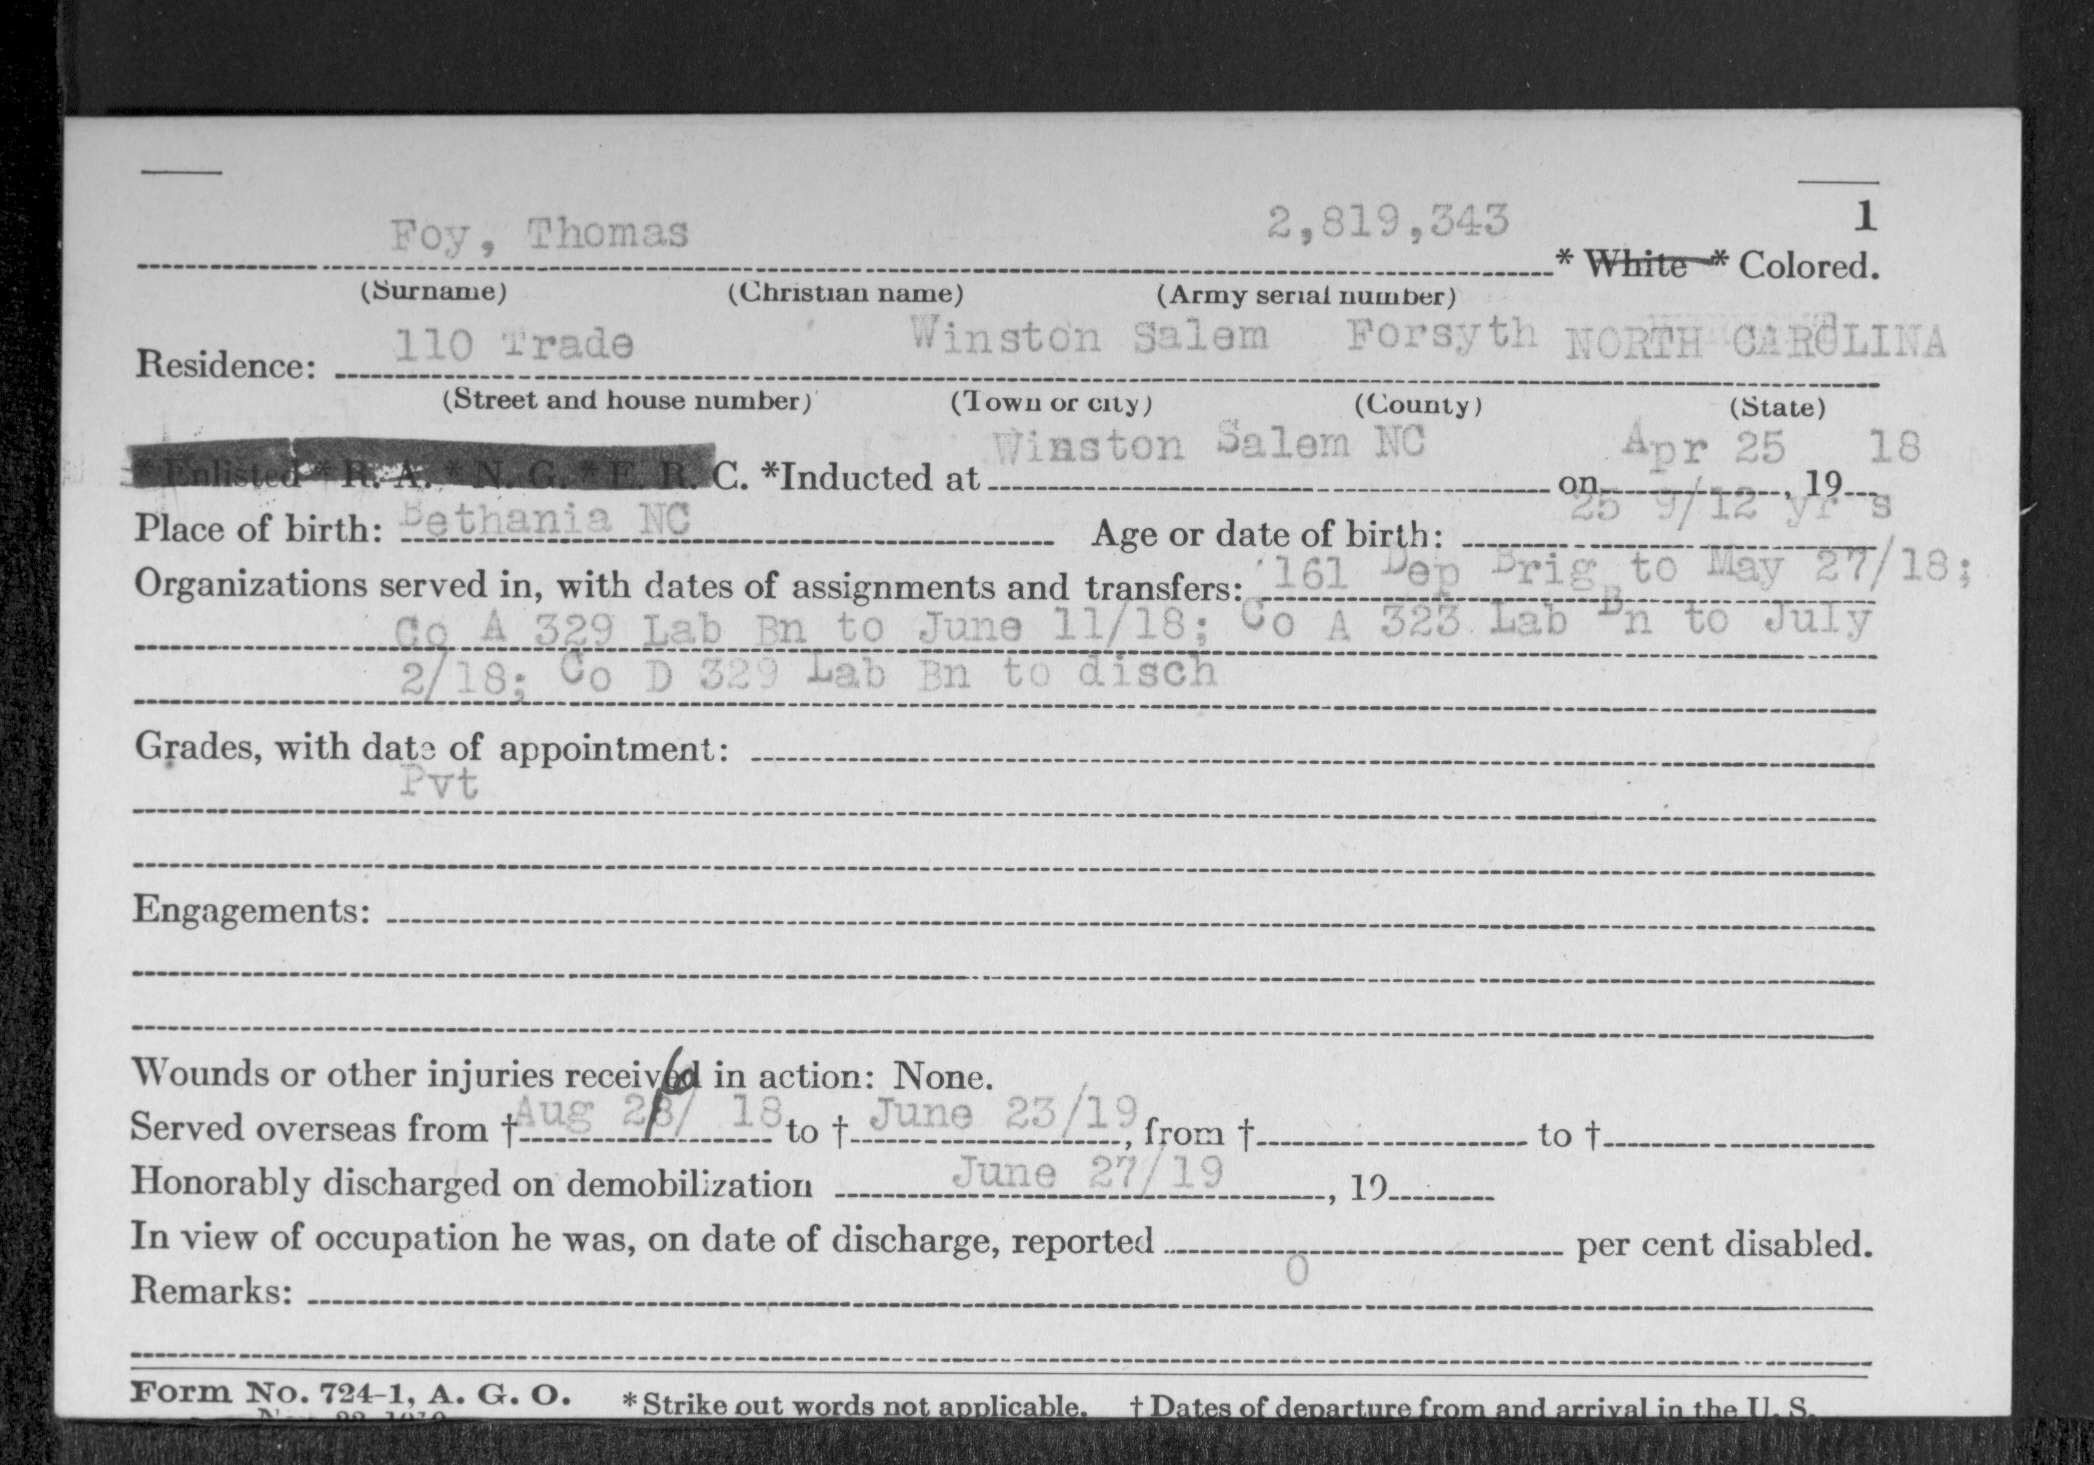 Foy, Thomas 2,819,343 1
* White * Colored.
(Surname) (Christian name) (Army serial number)
110 Trade Winston Salem Forsyth NORTH CAROLINA
Residence:
(Street and house number) (Town or city) (County) (State)
Winston Salem NC Apr 25 18
* Enlisted * R. A. * N. G. * E. R. C. *Inducted at on , 19
Place of birth: Bethania NC Age or date of birth: 25 9/12 yrs
Organizations served in, with dates of assignments and transfers: 161 Dep Brig to May 27/18;
Co A 329 Lab Bn to June 11/18; Co A 323 Lab Bn to July
2/18; Co D 329 Lab Bn to disch
Grades, with date of appointment:
Pvt
Engagements:
Wounds or other injuries received in action: None.
Served overseas from † Aug 18 to † June 23/19, from † to †
Honorably discharged on demobilization June 27/19, 19
In view of occupation he was, on date of discharge, reported per cent disabled.
0
Remarks:
Form No. 724-1, A. G. O. *Strike out words not applicable. † Dates of departure from and arrival in the U. S.